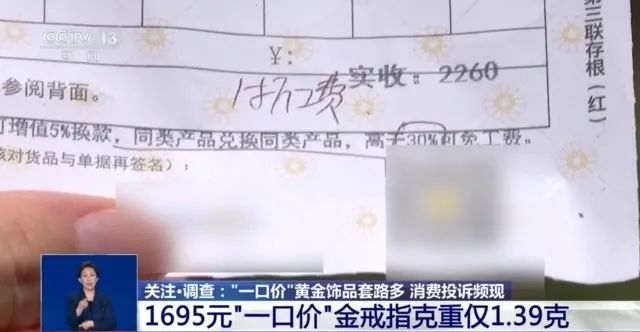 CCTV 13
第三联存根（红）
¥：
实收：2260
参阅背面。
付工费
可增值5%换款，同类产品兑换同类产品，高于30%可免工费。
核对货品与单据再签名）：
关注·调查："一口价"黄金饰品套路多 消费投诉频现
1695元"一口价"金戒指克重仅1.39克